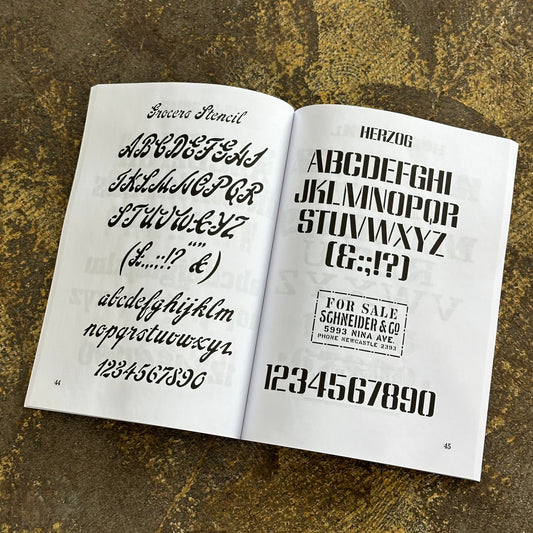 Grocers Stencil
ABCDEFGHI
JKLMNOPQR
STUVWXYZ
(£.,:;!?“”&)
abcdefghijklm
nopqrstuvwxyz
1234567890
44
HERZOG
ABCDEFGHI
JKLMNOPQR
STUVWXYZ
(&:;!?)
FOR SALE
SCHNEIDER & CO
5993 NINA AVE.
PHONE NEWCASTLE 2393
1234567890
45